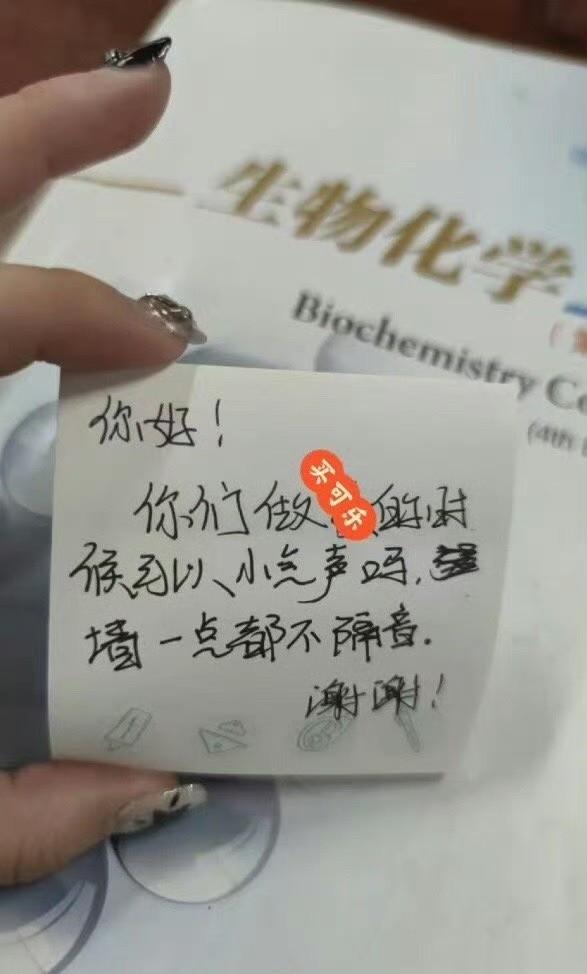 生物化学
Biochemistry Co
(4th
你好！
你们做买可乐的时
候可以小点声吗，
墙一点都不隔音．
谢谢！